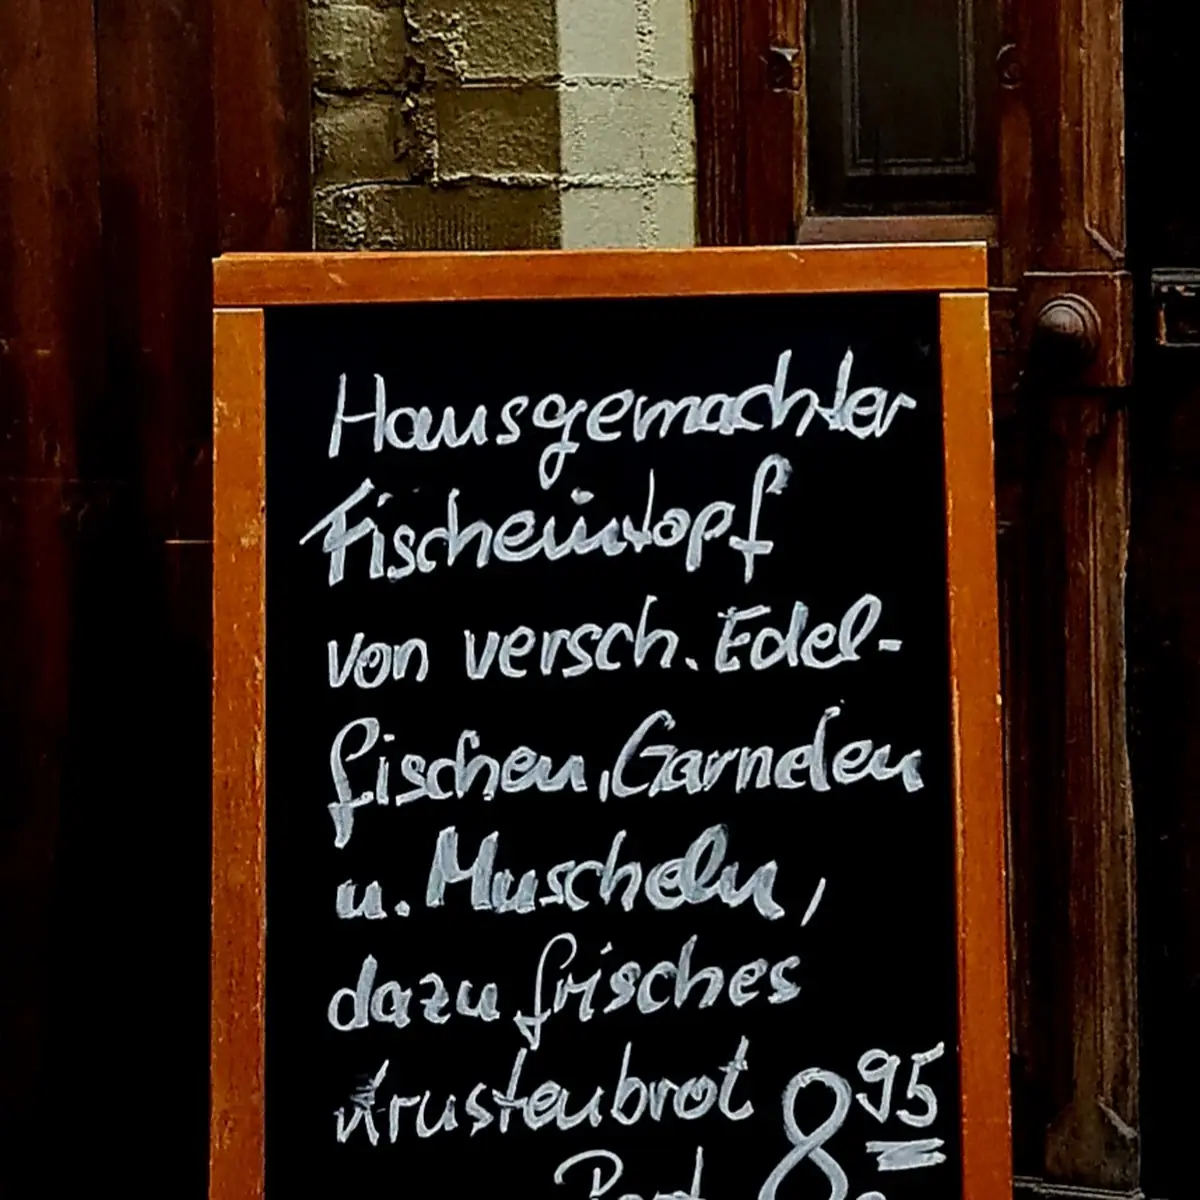 Hausgemachter
Fischeintopf
von versch. Edel-
fischen, Garnelen
u. Muscheln,
dazu frisches
Krustenbrot
8 95